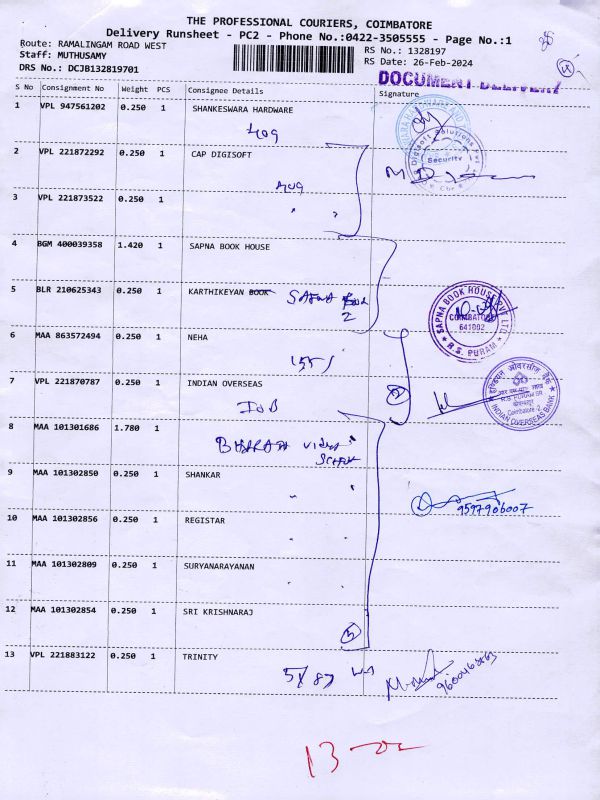 THE PROFESSIONAL COURIERS, COIMBATORE
Delivery Runsheet - PC2 - Phone No.:0422-3505555 - Page No.:1
Route: RAMALINGAM ROAD WEST
RS No.: 1328197
Staff: MUTHUSAMY
RS Date: 26-Feb-2024
DRS No.: DCJB132819701
DOCUMENT DELIVERY
S No Consignment No Weight PCS Consignee Details Signature
1 VPL 947561202 0.250 1 SHANKESWARA HARDWARE
2 VPL 221872292 0.250 1 CAP DIGISOFT
Digisoft Solutions Pvt
Security
3 VPL 221873522 0.250 1
4 BGM 400039358 1.420 1 SAPNA BOOK HOUSE
5 BLR 210625343 0.250 1 KARTHIKEYAN BOOK
2
SAPNA BOOK HOUSE PVT LTD
COIMBATORE
641002
R.S. PURAM
6 MAA 863572494 0.250 1 NEHA
7 VPL 221870787 0.250 1 INDIAN OVERSEAS
IOB
2
इण्डियन ओवरसीज़ बैंक
R.S PURAM BR
Coimbatore-2
INDIAN OVERSEAS BANK
8 MAA 101301686 1.780 1
9 MAA 101302850 0.250 1 SHANKAR
9597906007
10 MAA 101302856 0.250 1 REGISTAR
11 MAA 101302809 0.250 1 SURYANARAYANAN
12 MAA 101302854 0.250 1 SRI KRISHNARAJ
5
13 VPL 221883122 0.250 1 TRINITY
13